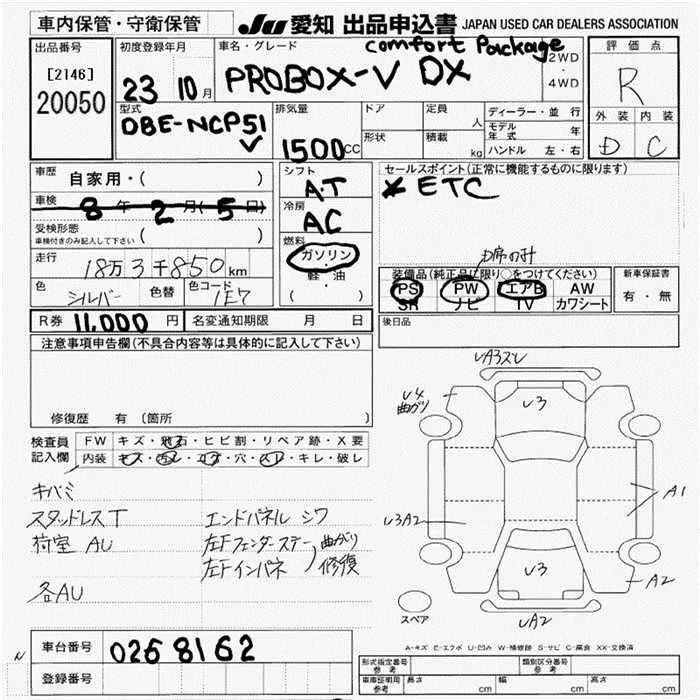 車内保管・守衛保管
JU 愛知 出品申込書 JAPAN USED CAR DEALERS ASSOCIATION
出品番号
[2146]
20050
初度登録年月
23 10月
車名・グレード
comfort Package
PROBOX-V DX
2WD
・
4WD
評価点
R
外装 内装
D C
型式
DBE-NCP51
排気量
1500cc
ドア
形状
定員 人
積載 kg
ディーラー・並行
モデル年式 年
ハンドル 左・右
車歴
自家用・( )
車検
8年 2月(5日)
受検形態
車検付きのみ記入して下さい
( )
走行
18万3千850km
色
シルバー
色替
色コード
1E7
シフト
A.T
冷房
AC
燃料
ガソリン
軽・油
( )
セールスポイント(正常に機能するものに限ります)
ETC
装備品(純正品に限り○をつけてください)
PS PW エアB AW
SR ナビ TV カワシート
新車保証書
有・無
R券 11,000円
名変通知期限 月 日
後日品
注意事項申告欄(不具合内容等は具体的に記入して下さい)
修復歴 有 〔箇所
検査員
記入欄
FW キズ・飛石・ヒビ割・リペア跡・X要
内装 キズ・汚レ・コゲ・穴・スレ・キレ・破レ
キバミ
スタッドレスT
荷室 AU
各AU
エンドパネル シワ
左Fフェンダーステー
左Fインパネ
曲がり
修復
UA3ズレ
U4
曲がり
U3
U3A2
A1
U3
A2
UA2
スペア
A-キズ E-エクボ U-凹み W-補修跡 S-サビ C-腐食 XX-交換済
車台番号
0268162
登録番号
形式指定番号
参考
類別区分番号
参考
車庫証明用
参考
長さ cm
幅 cm
高さ cm